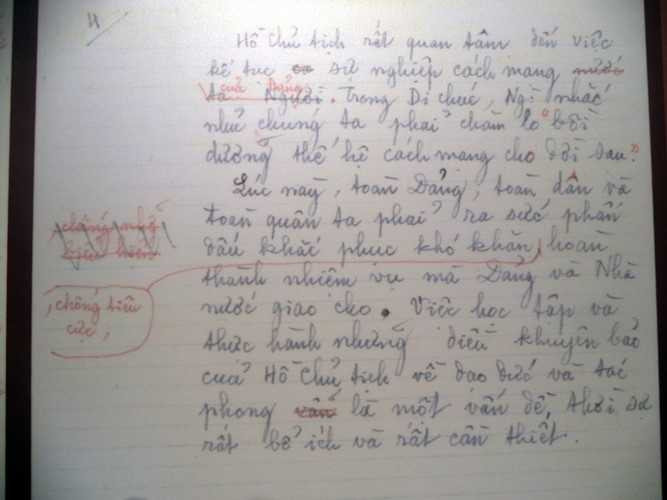 4
Hồ Chủ tịch rất quan tâm đến việc
kế tục sự nghiệp cách mạng nước
của Đảng
ta Người. Trong Di chúc, Người nhắc
nhủ chúng ta phải chăm lo "bồi
dưỡng thế hệ cách mạng cho đời sau".
Lúc này, toàn Đảng, toàn dân và
toàn quân ta phải ra sức phấn
đấu khắc phục khó khăn, hoàn
thành nhiệm vụ mà Đảng và Nhà
nước giao cho. Việc học tập và
thực hành những điều khuyên bảo
của Hồ Chủ tịch về đạo đức và tác
phong là một vấn đề, thời sự
rất bổ ích và rất cần thiết.
, chống tiêu
cực,